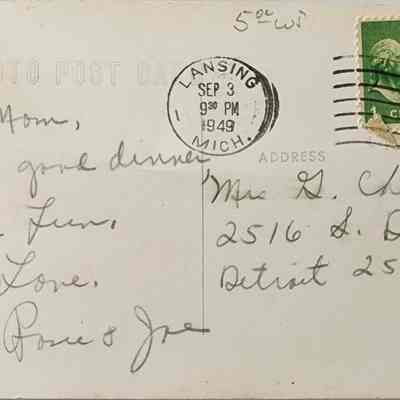 5 oc wt
OTO POST CA
LANSING
SEP 3
9 30 PM
1949
MICH.
1
Mom,
good dinner
Fun,
Love.
Rosie & Joe
ADDRESS
Mrs G. Ch
2516 S. D
Detroit 25